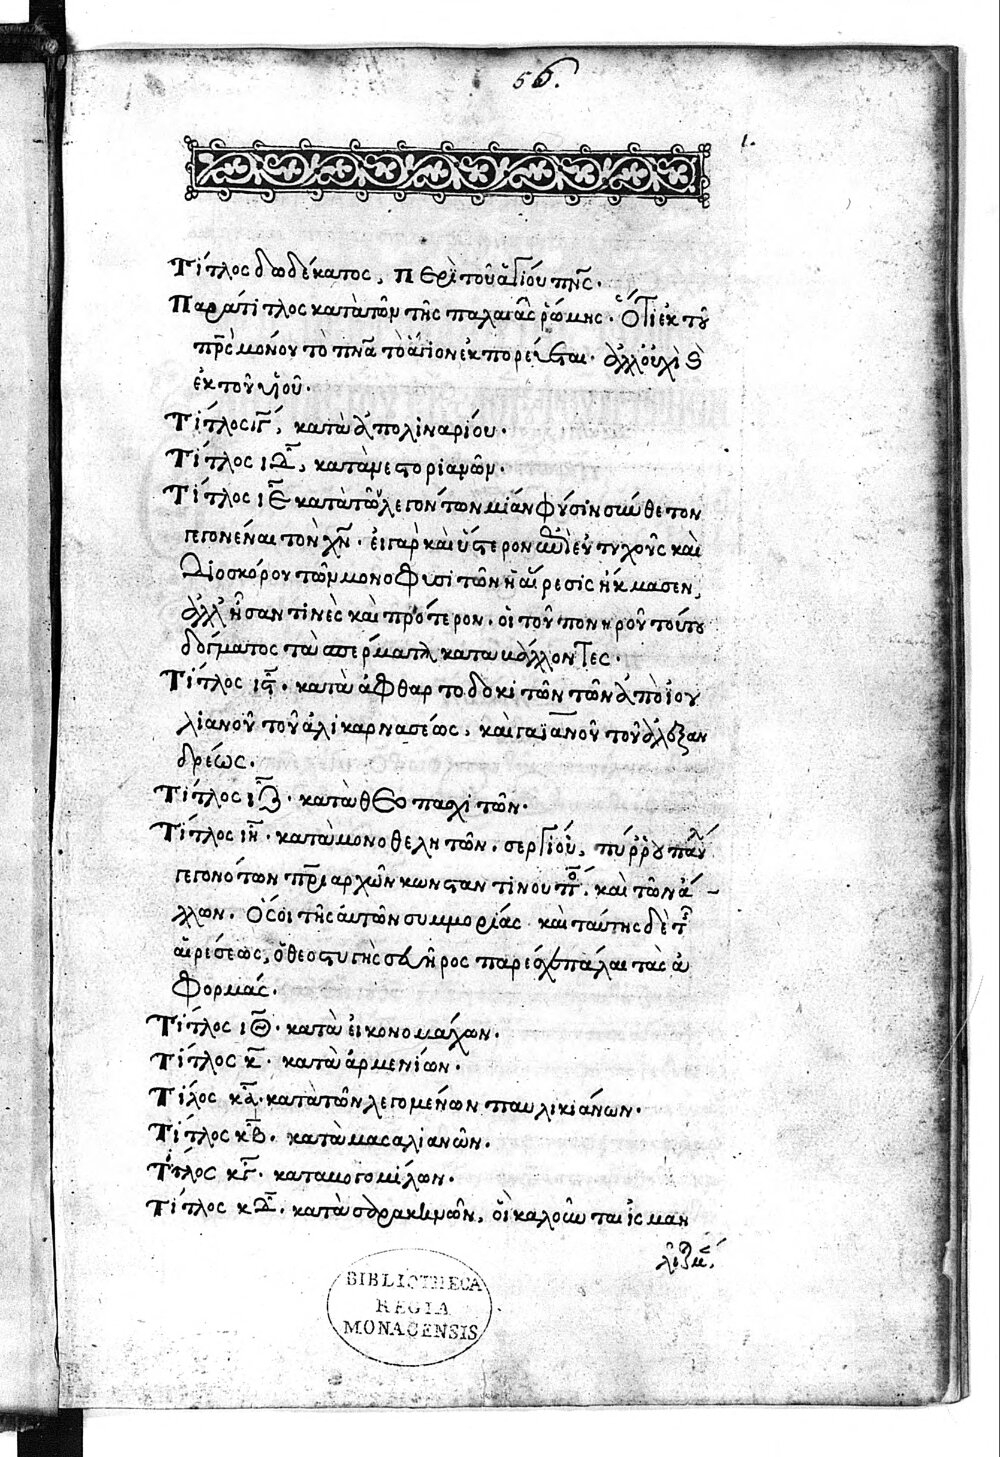 56.
1.
Τίτλος δωδέκατος, περὶ τοῦ ἁγίου πνς.
Παράτιτλος κατὰ τῶν τῆς παλαιᾶς ῥώμης. Ὅτι ἐκ τοῦ
πρς μόνου τὸ πνα τὸ ἅγιον ἐκπορεύεται. ἀλλ' οὐχὶ
ἐκ τοῦ υἱοῦ.
Τίτλος ιγ, κατὰ ἀπολιναρίου.
Τίτλος ιδ, κατὰ νεστοριανῶν.
Τίτλος ιε κατὰ τῶν λεγόντων μίαν φύσιν σύνθετον
γεγονέναι τὸν χν. εἰ γὰρ καὶ ὕστερον ἐπὶ εὐτυχοῦς καὶ
Διοσκόρου τῶν μονοφυσιτῶν ἡ αἵρεσις ἤκμασεν,
ἀλλ' ἦσαν τινὲς καὶ πρότερον. οἱ τοῦ πονηροῦ τούτου
δόγματος τὰ σπέρματα καταβάλλοντες.
Τίτλος ις. κατὰ ἀφθαρτοδοκιτῶν τῶν ἀπὸ ἰου
λιανοῦ τοῦ ἁλικαρνασέως, καὶ γαϊανοῦ τοῦ ἀλεξαν
δρέως.
Τίτλος ιζ. κατὰ θεοπασχιτῶν.
Τίτλος ιη. κατὰ μονοθελητῶν. σεργίου, πύρρου παύλ
γεγονότων πριαρχῶν κωνσταντίνου π. καὶ τῶν ἄ-
λλων. Ὅσοι τῆς αὐτῶν συμμορίας. καὶ ταύτης δὲ τ
αἱρέσεως, ὁ θεοστυγὴς σεβῆρος παρέσχε πάλαι τὰς ἀ
φορμάς.
Τίτλος ιθ. κατὰ εἰκονομάχων.
Τίτλος κ. κατὰ ἀρμενίων.
Τίλος κα. κατὰ τῶν λεγομένων παυλικιάνων.
Τίτλος κβ. κατὰ μασαλιανῶν.
Τίτλος κγ. κατα μογομίλων.
Τίτλος κδ. κατὰ σαρακηνῶν, οἳ καλοῦνται ἰσμαη
λίται.
BIBLIOTHECA
REGIA
MONACENSIS